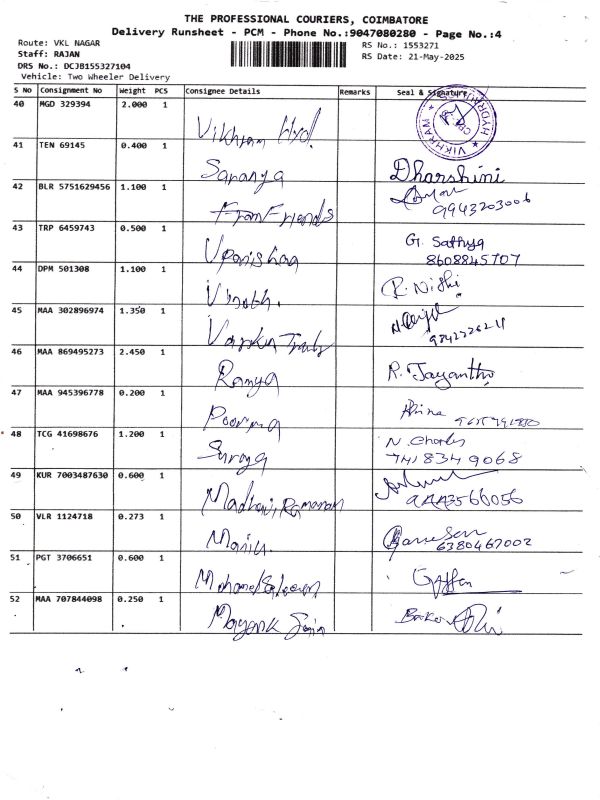 THE PROFESSIONAL COURIERS, COIMBATORE
Delivery Runsheet - PCM - Phone No.:9047080280 - Page No.:4
Route: VKL NAGAR
Staff: RAJAN
DRS No.: DCJB155327104
Vehicle: Two Wheeler Delivery
RS No.: 1553271
RS Date: 21-May-2025
S No Consignment No Weight PCS Consignee Details Remarks Seal & Signature
40 MGD 329394 2.000 1 Vikhram Hyd. VIKHRAM
41 TEN 69145 0.400 1 Saranya Dharshini
42 BLR 5751629456 1.100 1 From Friends 9943203006
43 TRP 6459743 0.500 1 Upanishaa G. Sathya
8608845707
44 DPM 501308 1.100 1 R. Nishi
45 MAA 302896974 1.350 1
46 MAA 869495273 2.450 1 Ramya R. Jayanthi
47 MAA 945396778 0.200 1 Poorna
48 TCG 41698676 1.200 1 Suraya N. Charles
7418349068
49 KUR 7003487630 0.600 1 Madhavi Ramanan
50 VLR 1124718 0.273 1 Ganesan
6380467002
51 PGT 3706651 0.600 1 Mohamed
52 MAA 707844098 0.250 1 Mayank Jain